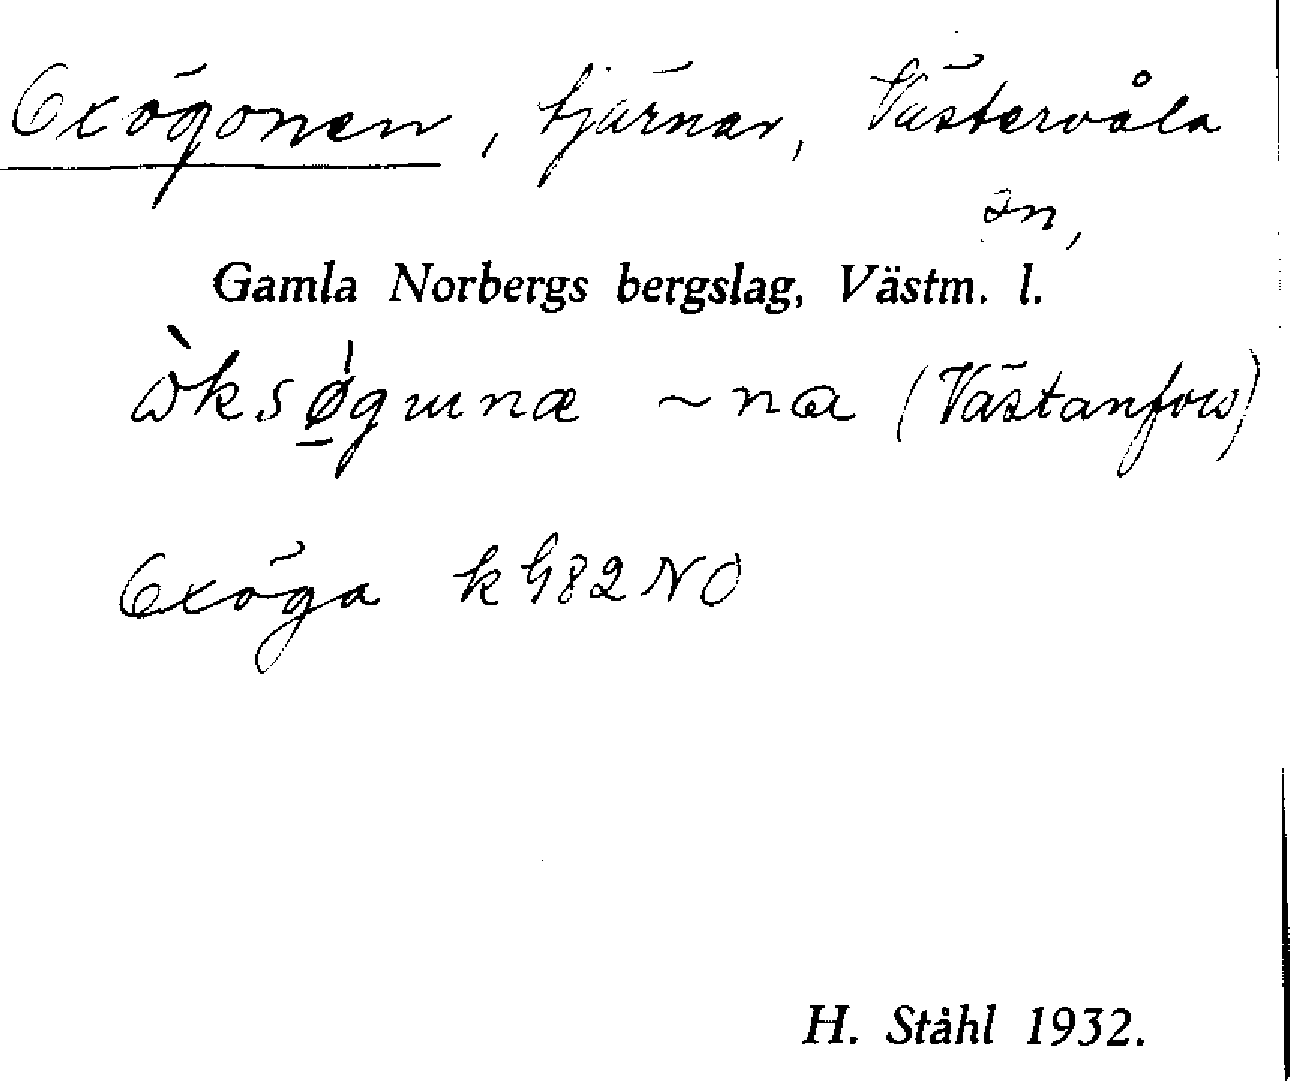 Oxögonen, tjärnar, Västervåla
sn,
Gamla Norbergs bergslag, Västm. l.
ɷ̀ksǿ̠gɯnæ ~na (Västanfors)
Oxöga k G82 NO
H. Ståhl 1932.